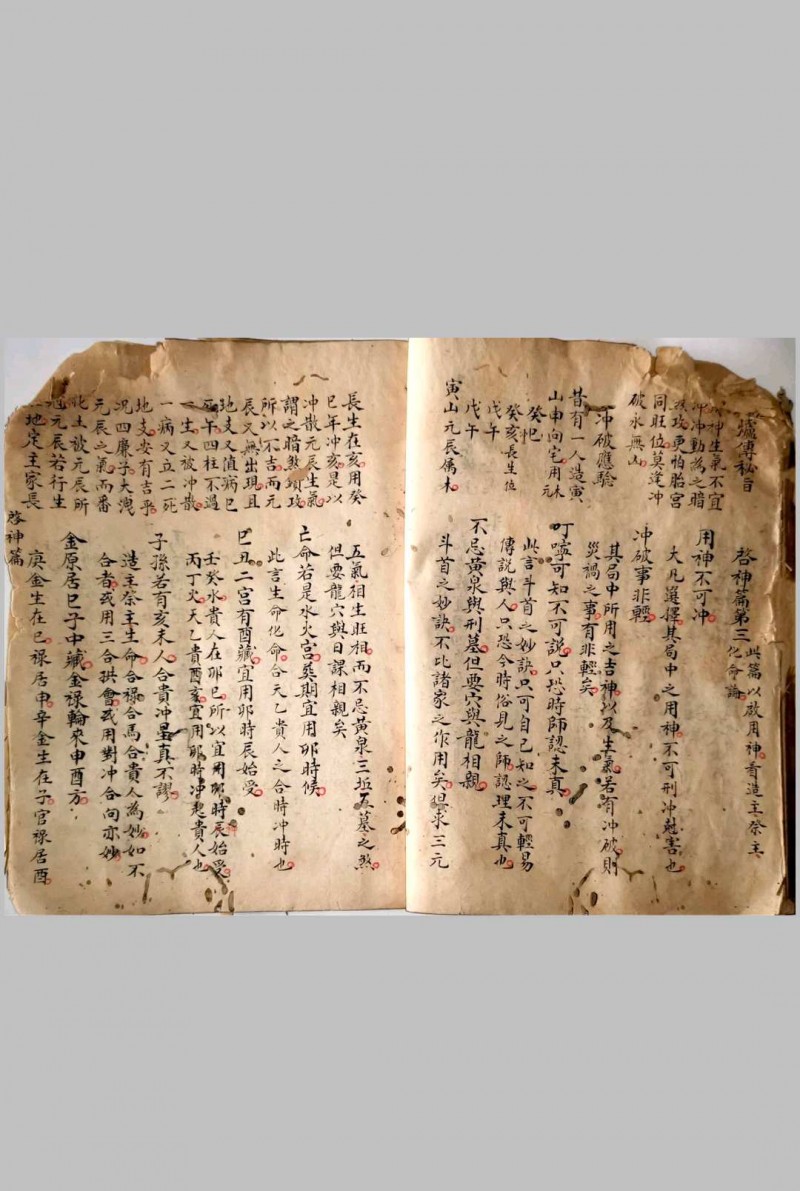 爐傳秘旨
神生氣不宜
冲冲動為之暗
煞攻更怕胎宮
同旺位莫逢冲
破水無山
冲破應驗
昔有一人造寅
山申向宅用木元
癸㐲
癸亥長生位
戊午
戊午
寅山元辰偽木
啓神篇第三
此篇以啟用神看造主祭主
化命論
用神不可冲
大凡選擇其局中之用神不可刑冲尅害也
冲破事非輕
其局中所用之吉神以及生氣若有冲破則
災禍之事有非輕矣
叮嚀可知不可說只恐時師認未真
此言斗首之妙訣只可自己知之不可輕易
傳說與人只恐今時俗見之師認理未真也
不忌黃泉與刑墓但要穴與龍相親
斗首之妙訣不比諸家之作用矣俱求三元
長生在亥用癸
巳年冲亥是以
冲散元辰生氣
謂之暗煞項攻
所以不吉而元
辰又無出現且
地支又值病巳
死午四柱不過
一生又被冲散
一病又立二死
地支安有吉乎
况四廉子大洩
元辰之氣而番
化土被元辰所
尅元辰若行生
地定主家長
啓神篇
五氣相生旺相而不忌黃泉三坵五墓之煞
但要龍穴與日課相親矣
亡命若是水火宮奠期宜用卯時候
此言生命化命合天乙貴人之合時冲時也
巳丑二宮有酉藏宜用卯時辰始受
壬癸水貴人在卯巳所以宜用卯時辰始受
丙丁火天乙貴酉亥宜用卯時冲起貴人也
子孫若有亥未人合貴冲星真不謬
造主祭主生命合祿合馬合貴人為妙如不
合者或用三合拱會或用對冲合向亦妙
金原居巳子中藏金祿輪來申酉方
庚金生在巳祿居申辛金生在子宮祿居酉